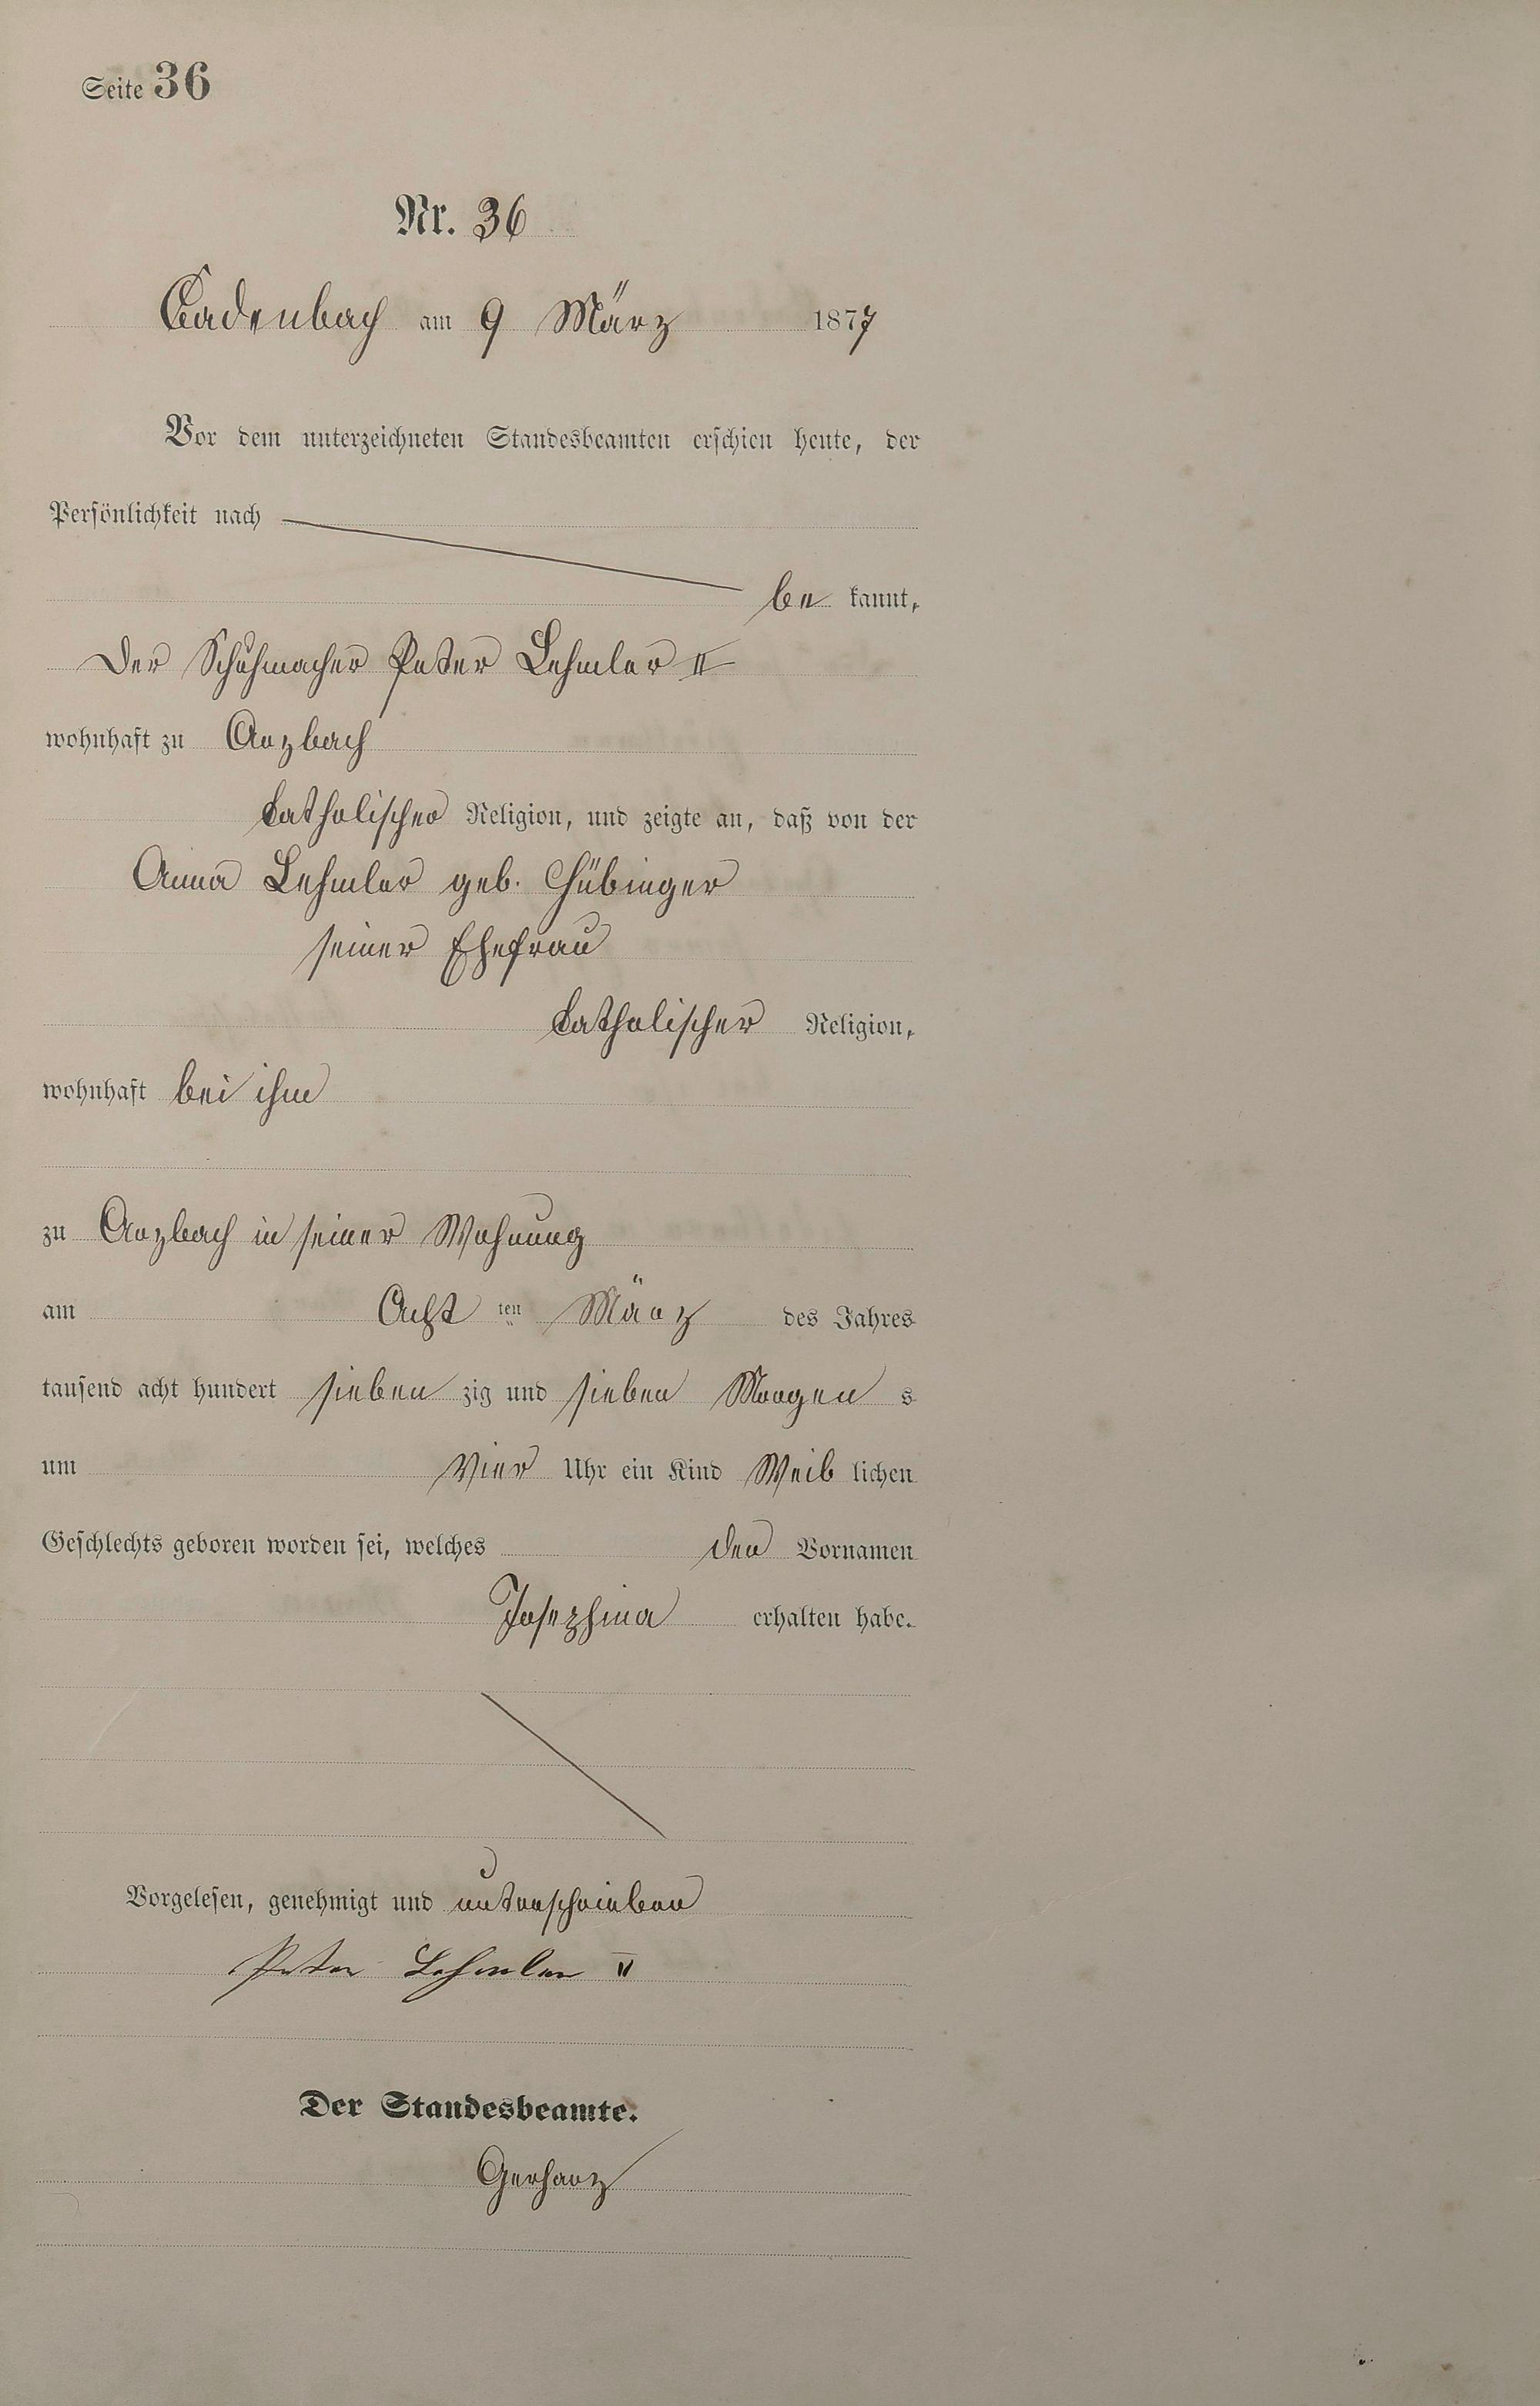 Seite 36
Nr. 36
Cadenbach am 9 März 1877
Vor dem unterzeichneten Standesbeamten erschien heute, der
Persönlichkeit nach
be kannt,
Der Schuhmacher Peter Lehmler II
wohnhaft zu Arzbach
katholischer Religion, und zeigte an, daß von der
Anna Lehmler geb. Hübinger
seiner Ehefrau
katholischer Religion,
wohnhaft bei ihm
zu Arzbach in seiner Wohnung
am Acht ten März des Jahres
tausend acht hundert sieben zig und sieben Morgen s
um Vier Uhr ein Kind Weib lichen
Geschlechts geboren worden sei, welches den Vornamen
Josephina erhalten habe.
Vorgelesen, genehmigt und unterschrieben
Peter Lehmler II
Der Standesbeamte.
Gerharz